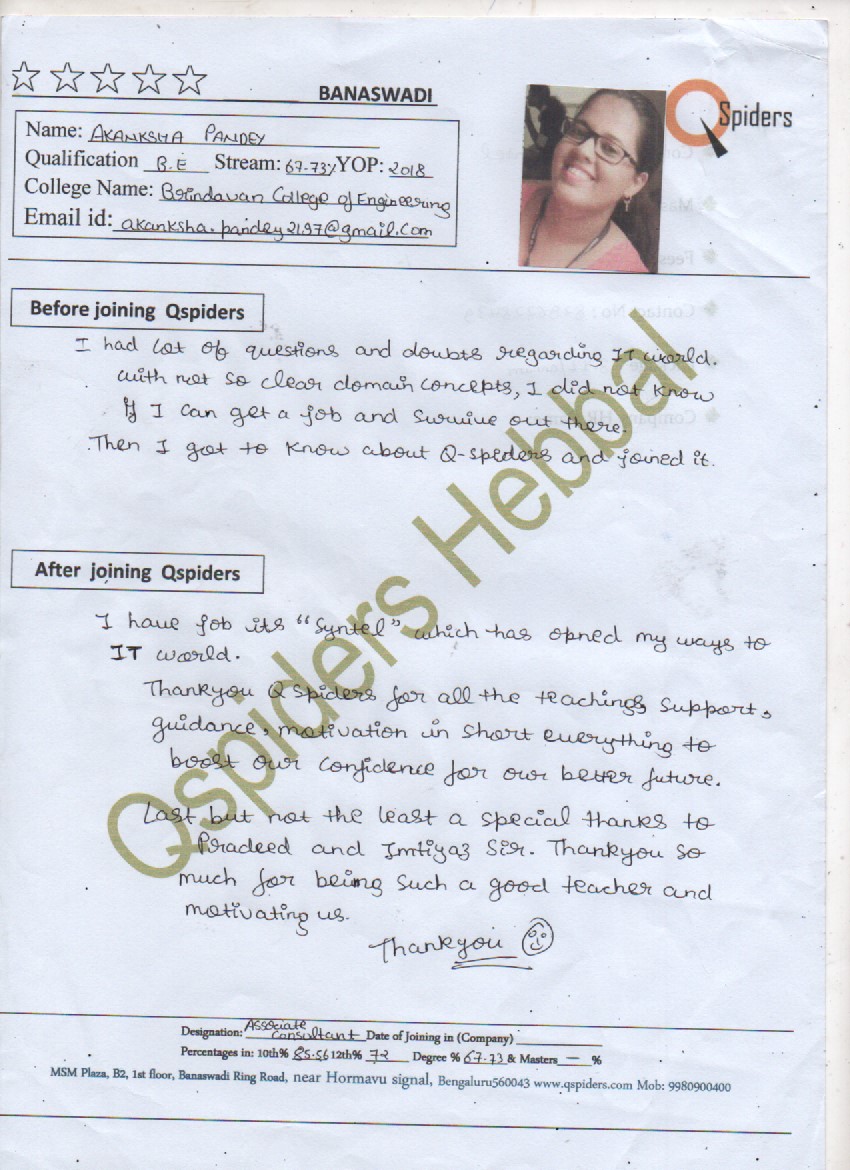 BANASWADI
QSpiders
Name: AKANKSHA PANDEY
Qualification B.E Stream: 67.73% YOP: 2018
College Name: Brindavan College of Engineering
Email id: akanksha.pandey2197@gmail.com
Before joining Qspiders
I had lot of questions and doubts regarding IT world.
with not so clear domain concepts, I did not know
if I can get a job and survive out there.
Then I got to know about Q-spiders and joined it.
Qspiders Hebbal
After joining Qspiders
I have job its "Syntel" which has opned my ways to
IT world.
Thankyou Q spiders for all the teachings, support,
guidance, motivation in short everything to
boost our confidence for our better future.
Last but not the least a special thanks to
Piradeed and Imtiyaz Sir. Thankyou so
much for being such a good teacher and
motivating us.
Thankyou
Designation: Associate Consultant Date of Joining in (Company)
Percentages in: 10th% 85.56 12th% 72 Degree % 67.73 & Masters — %
MSM Plaza, B2, 1st floor, Banaswadi Ring Road, near Hormavu signal, Bengaluru560043 www.qspiders.com Mob: 9980900400